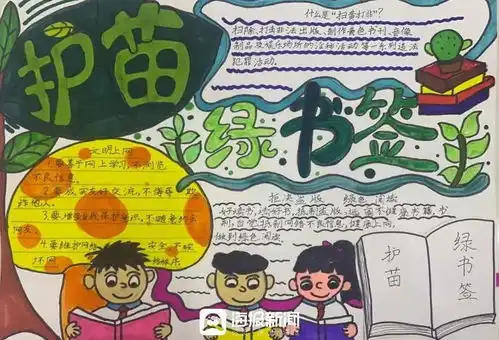 护苗
什么是“扫黄打非”？
扫除、打击非法出版、制作黄色书刊、音像
制品及娱乐场所的治理活动等一系列违法
犯罪活动。
绿书签
文明上网
1.要善于网上学习，不浏览
不良信息。
2.要诚实友好交流，不侮辱欺
诈他人。
3.要增强自我保护意识，不随意约会
网友
4.要维护网络安全 不破
拒绝盗版 绿色阅读
好读书，读好书，抵制盗版
制，自觉抵制网络不良信息，健康上网，
做到绿色阅读
护苗
绿书签
海报新闻